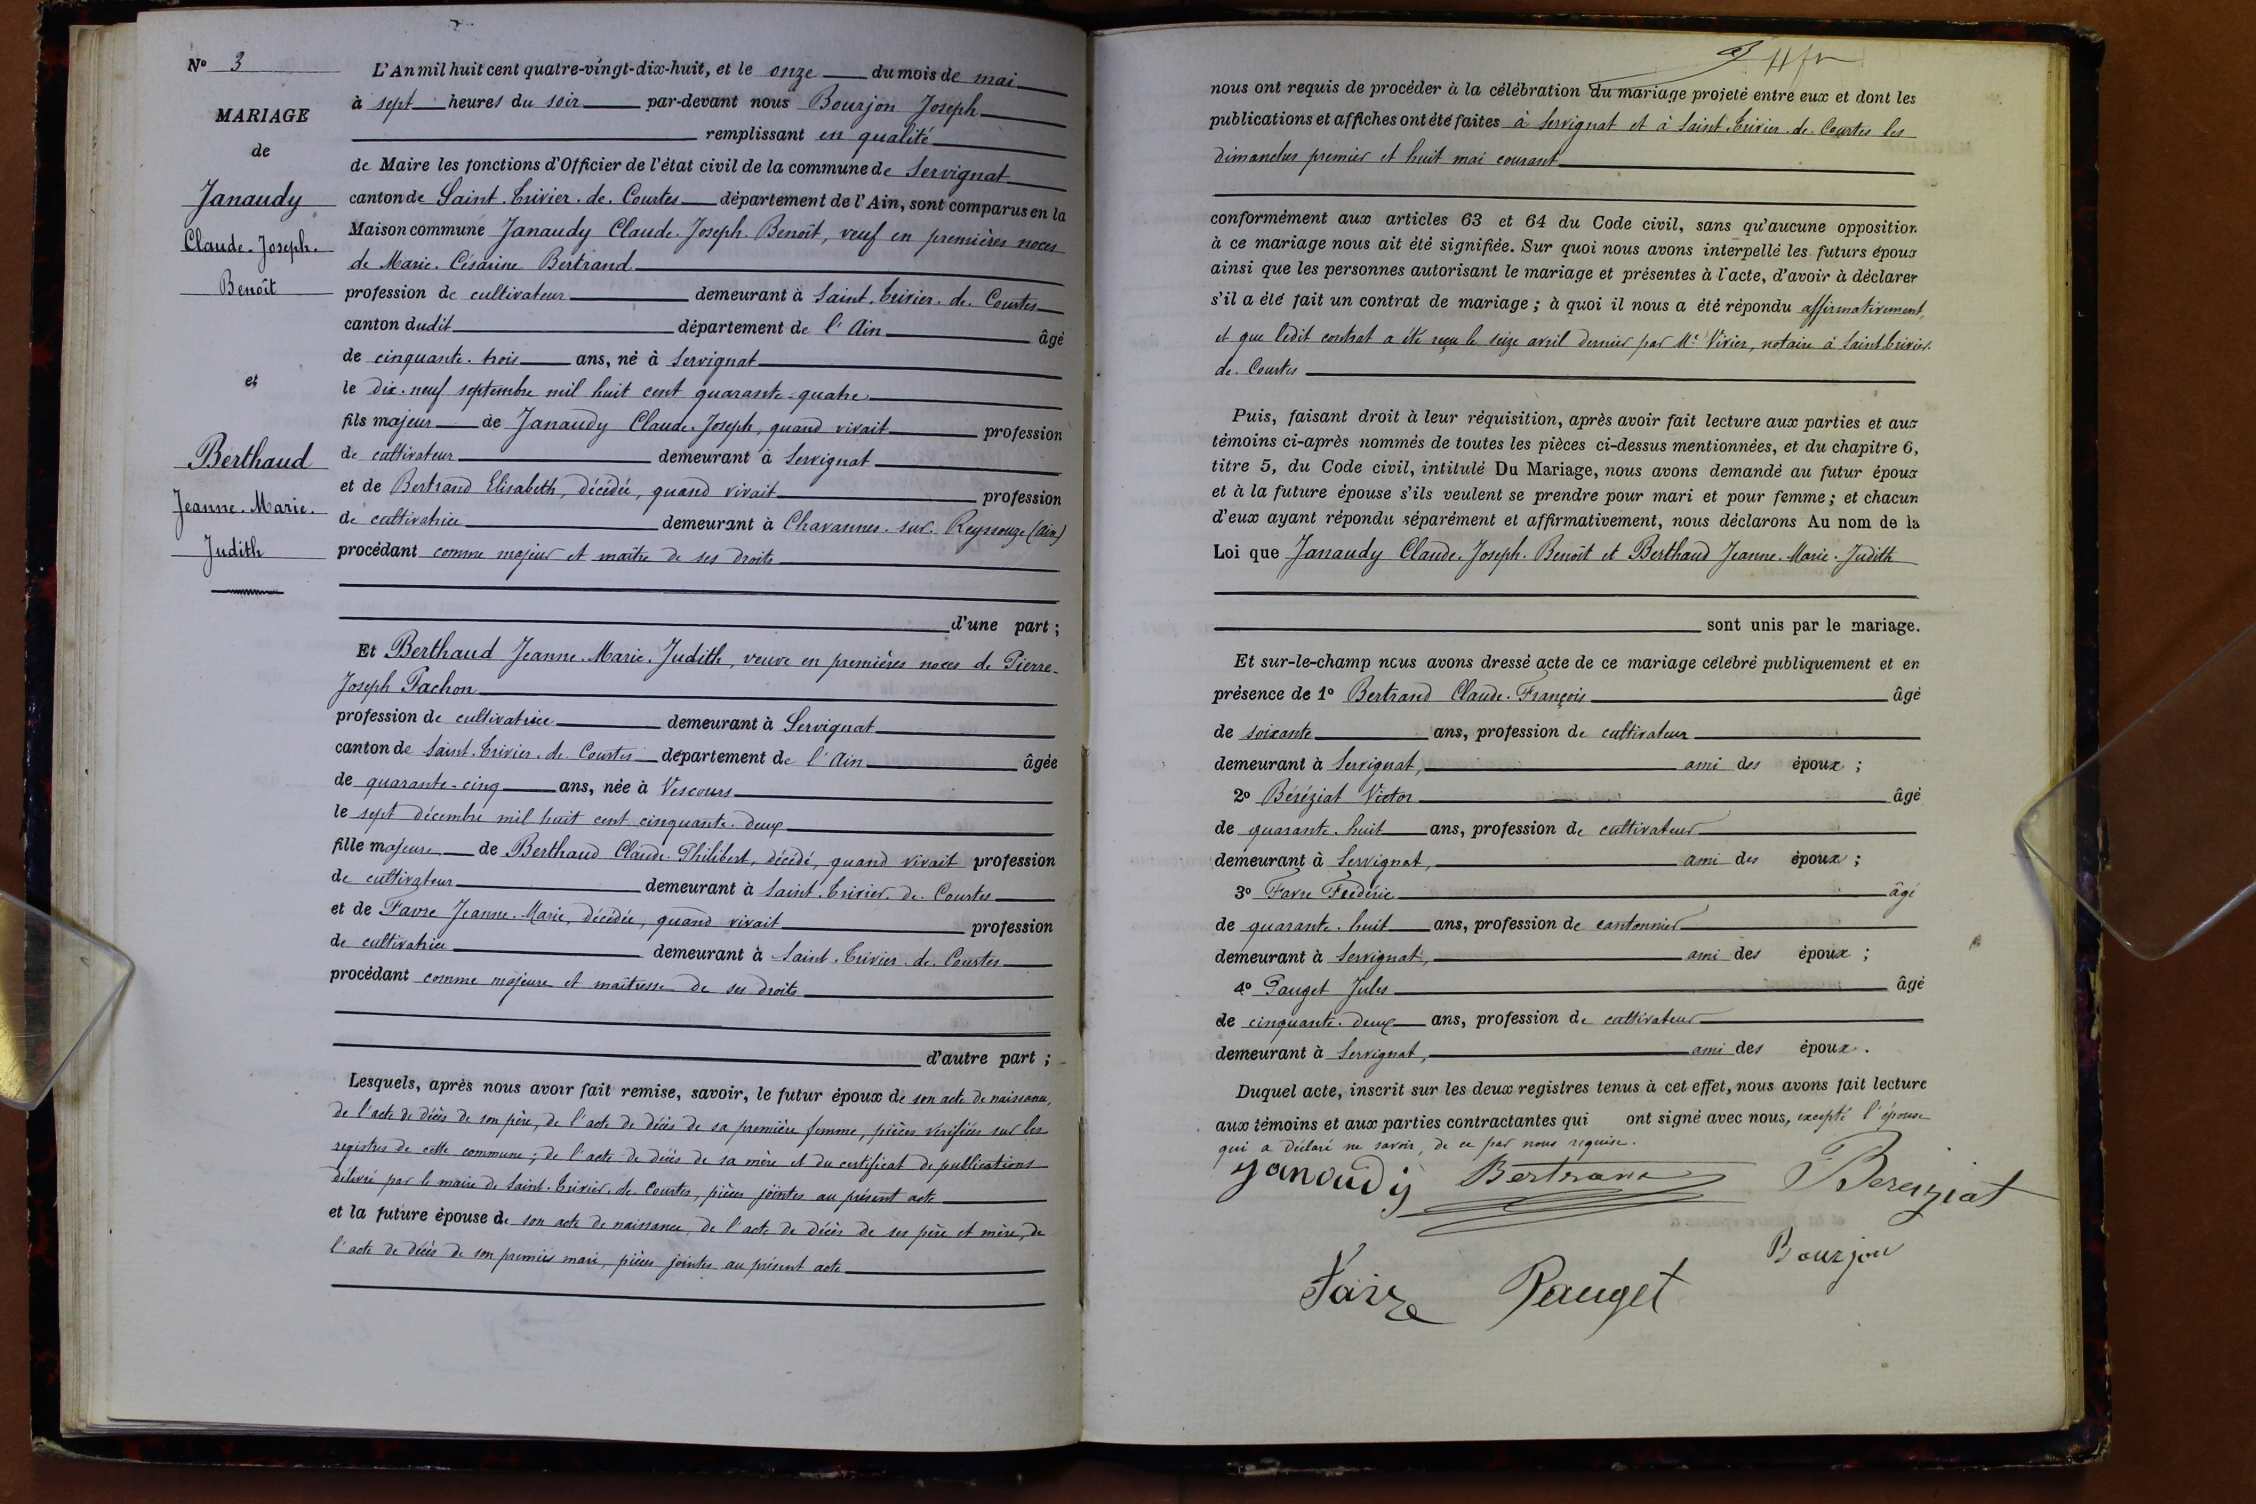 N° 3
MARIAGE
de
Janaudy
Claude-Joseph-
Benoît
et
Berthaud
Jeanne-Marie-
Judith
L'An mil huit cent quatre-vingt-dix-huit, et le onze du mois de mai
à sept heures du soir par-devant nous Bourjon Joseph
remplissant en qualité
de Maire les fonctions d'Officier de l'état civil de la commune de Servignat
canton de Saint-Trivier-de-Courtes département de l'Ain, sont comparus en la
Maison commune Janaudy Claude-Joseph-Benoît, veuf en premières noces
de Marie-Césarine Bertrand
profession de cultivateur demeurant à Saint-Trivier-de-Courtes
canton dudit département de l'Ain âgé
de cinquante-trois ans, né à Servignat
le dix-neuf septembre mil huit cent quarante-quatre
fils majeur de Janaudy Claude-Joseph, quand vivait profession
de cultivateur demeurant à Servignat
et de Bertrand Elisabeth, décédée, quand vivait profession
de cultivatrice demeurant à Chavannes-sur-Reyssouze (Ain)
procédant comme majeur et maître de ses droits
d'une part ;
Et Berthaud Jeanne-Marie-Judith, veuve en premières noces de Pierre-
Joseph Fachon
profession de cultivatrice demeurant à Servignat
canton de Saint-Trivier-de-Courtes département de l'Ain âgée
de quarante-cinq ans, née à Vescours
le sept décembre mil huit cent cinquante-deux
fille majeure de Berthaud Claude-Philibert, décédé, quand vivait profession
de cultivateur demeurant à Saint-Trivier-de-Courtes
et de Favre Jeanne-Marie, décédée, quand vivait profession
de cultivatrice demeurant à Saint-Trivier-de-Courtes
procédant comme majeure et maîtresse de ses droits
d'autre part ;
Lesquels, après nous avoir fait remise, savoir, le futur époux de son acte de naissance,
de l'acte de décès de son père, de l'acte de décès de sa première femme, pièces vérifiées sur les
registres de cette commune ; de l'acte de décès de sa mère et du certificat de publications
délivré par le maire de Saint-Trivier-de-Courtes, pièces jointes au présent acte
et la future épouse de son acte de naissance, de l'acte de décès de ses père et mère, de
l'acte de décès de son premier mari, pièces jointes au présent acte
nous ont requis de procéder à la célébration du mariage projeté entre eux et dont les
publications et affiches ont été faites à Servignat et à Saint-Trivier-de-Courtes les
dimanches premier et huit mai courant
conformément aux articles 63 et 64 du Code civil, sans qu'aucune opposition
à ce mariage nous ait été signifiée. Sur quoi nous avons interpellé les futurs époux
ainsi que les personnes autorisant le mariage et présentes à l'acte, d'avoir à déclarer
s'il a été fait un contrat de mariage ; à quoi il nous a été répondu affirmativement,
et que ledit contrat a été reçu le seize avril dernier par Me Vivier, notaire à Saint-Trivier-
de-Courtes
Puis, faisant droit à leur réquisition, après avoir fait lecture aux parties et aux
témoins ci-après nommés de toutes les pièces ci-dessus mentionnées, et du chapitre 6,
titre 5, du Code civil, intitulé Du Mariage, nous avons demandé au futur époux
et à la future épouse s'ils veulent se prendre pour mari et pour femme ; et chacun
d'eux ayant répondu séparément et affirmativement, nous déclarons Au nom de la
Loi que Janaudy Claude-Joseph-Benoît et Berthaud Jeanne-Marie-Judith
sont unis par le mariage.
Et sur-le-champ nous avons dressé acte de ce mariage célébré publiquement et en
présence de 1° Bertrand Claude-François âgé
de soixante ans, profession de cultivateur
demeurant à Servignat, ami des époux ;
2° Béréziat Victor âgé
de quarante-huit ans, profession de cultivateur
demeurant à Servignat, ami des époux ;
3° Favre Frédéric âgé
de quarante-huit ans, profession de cantonnier
demeurant à Servignat, ami des époux ;
4° Pauget Jules âgé
de cinquante-deux ans, profession de cultivateur
demeurant à Servignat, ami des époux.
Duquel acte, inscrit sur les deux registres tenus à cet effet, nous avons fait lecture
aux témoins et aux parties contractantes qui ont signé avec nous, excepté l'épouse
qui a déclaré ne savoir, de ce par nous requise.
Janaudy Bertrand Bereziat
Bourjon
Favre Pauget